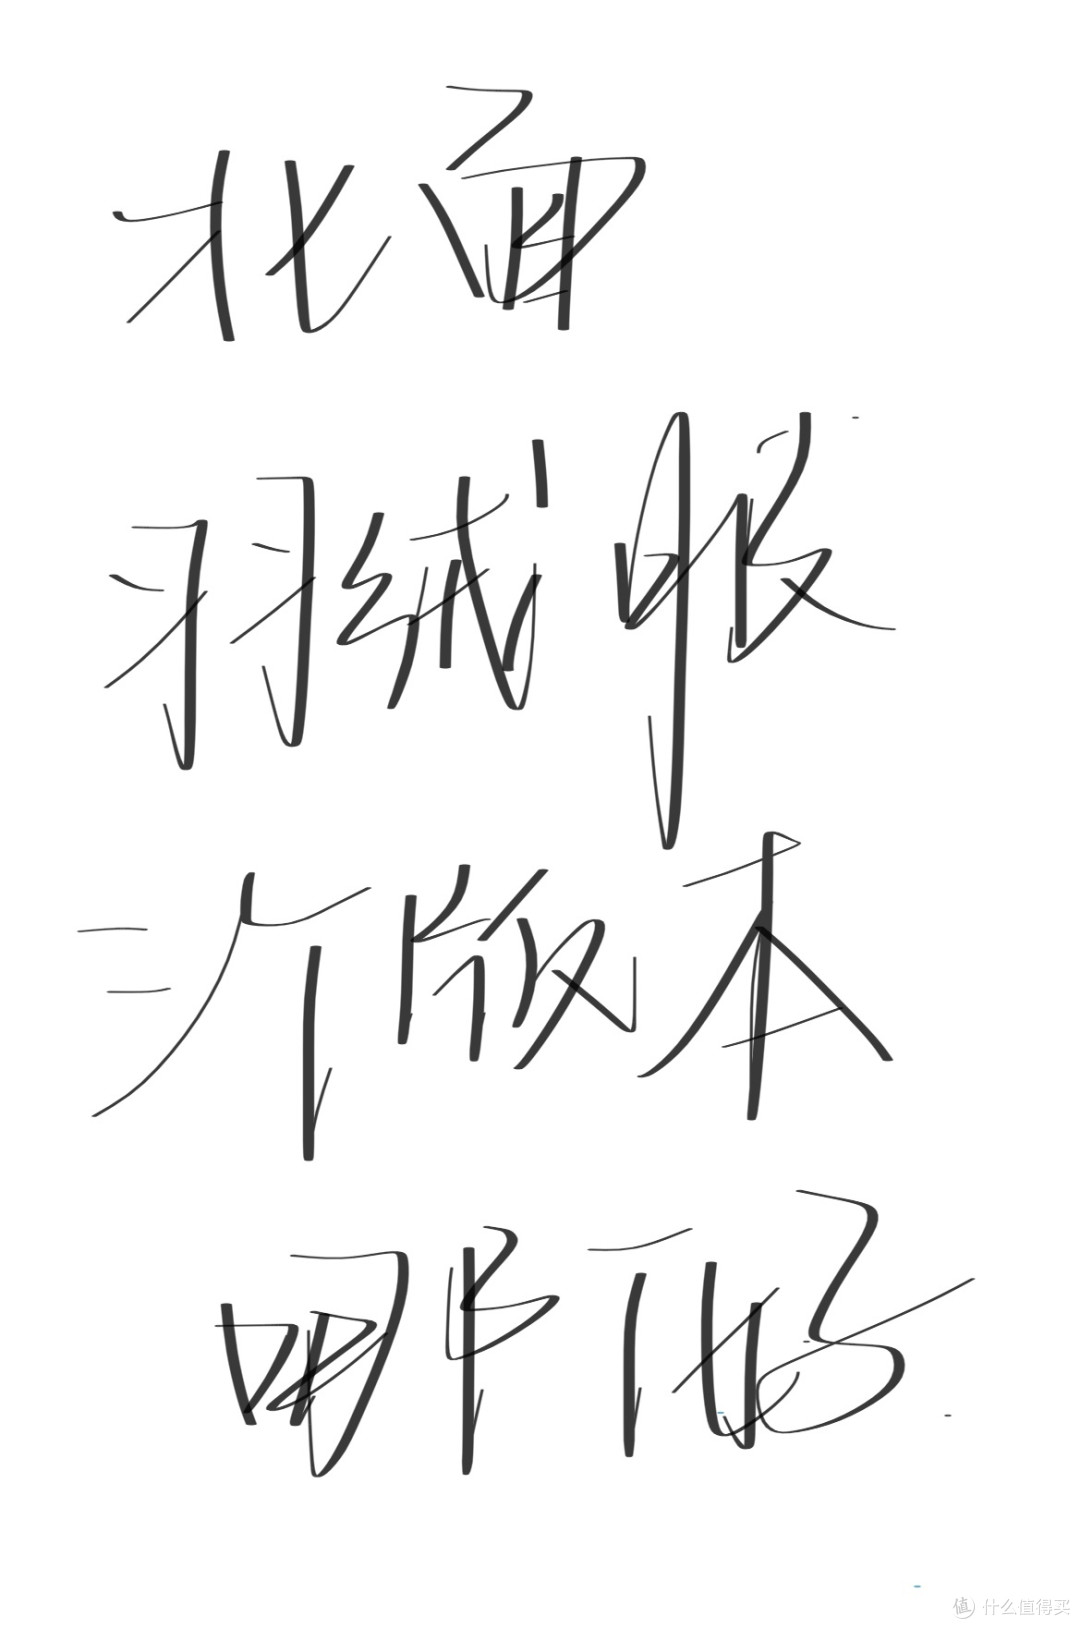 北面
羽绒服
三个版本
哪个好
值 什么值得买